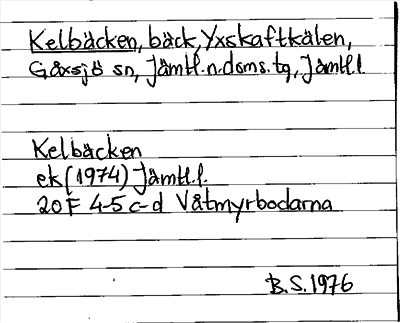 Kelbäcken, bäck, Yxskaftkälen,
Gåxsjö sn, Jämtl.n.doms.tg, Jämtl.l
Kelbäcken
ek (1974) Jämtl.l.
20F 4-5 c-d Våtmyrbodarna
B.S.1976